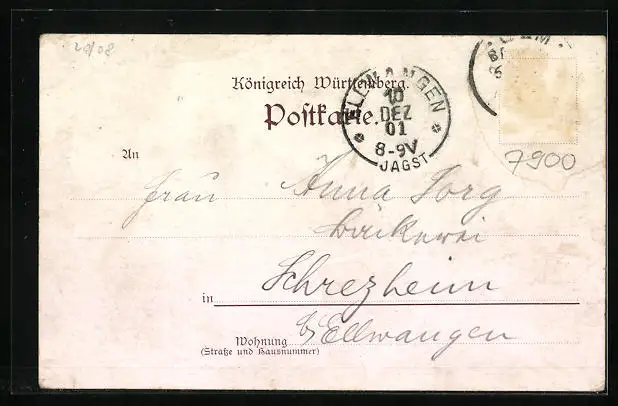 20/08
Königreich Württemberg.
Postkarte.
ELLWANGEN
10
DEZ
01
8-9V
JAGST
7900
An
Frau Anna Jorg
Bäckerei
in Schrezheim
b/ Ellwangen
Wohnung
(Straße und Hausnummer)